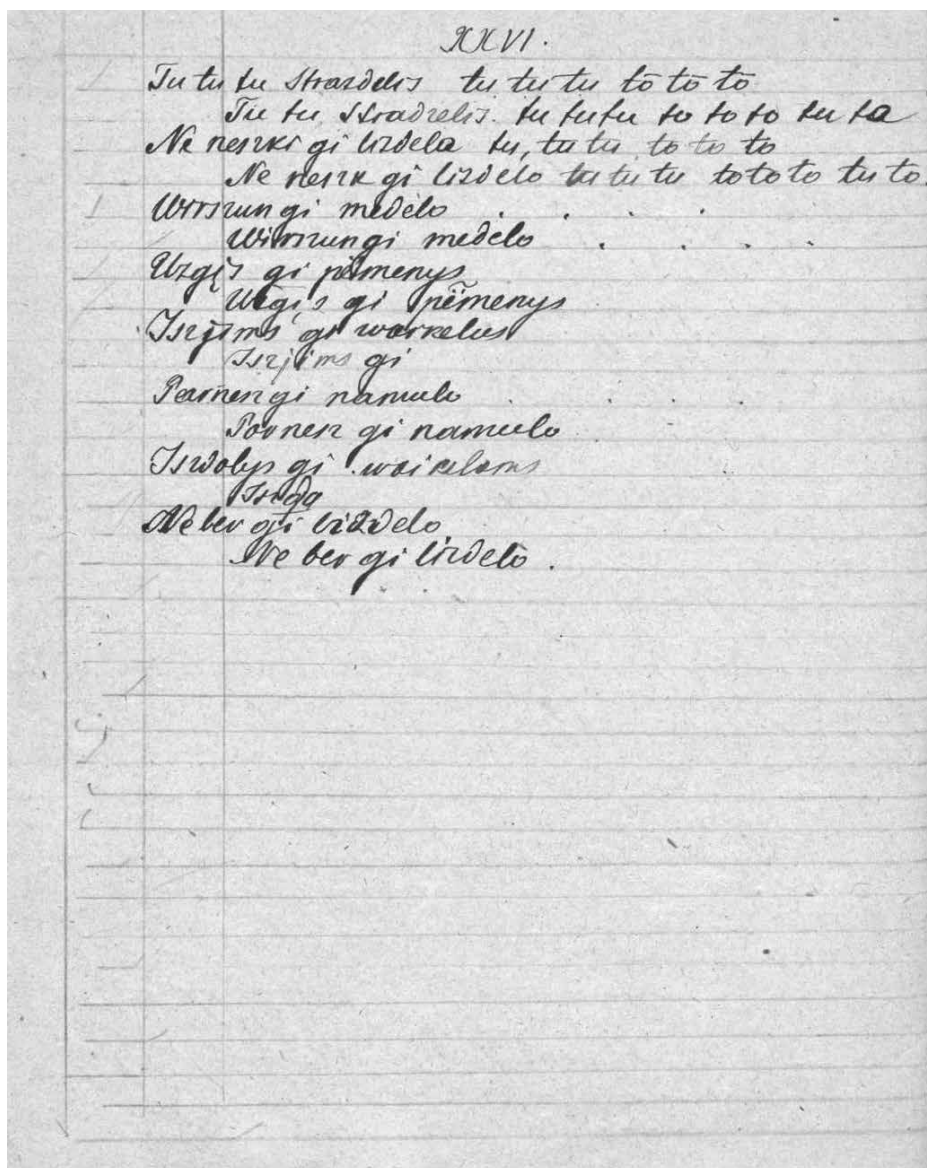 XXVI.
Tu tu tu Strazdelis tu tu tu to to to
Tu tu Stradzelis tu tu tu to to to tu ta
Ne neszki gi lizdela tu, tu tu to to to
Ne neszk gi lizdelo tu tu tu to to to tu to.
Wirszun gi medelo . . . .
Wirszun gi medelo . . . .
Użgįs gi pëmenys
Użgįs gi pëmenys
Iszjims gi waikelus
Iszjims gi
Parnesz gi namulo . . . .
Parnesz gi namulo
Iszdalys gi waikelams
Iszda
Ne ber gi lizdelo
Ne ber gi lizdelo .